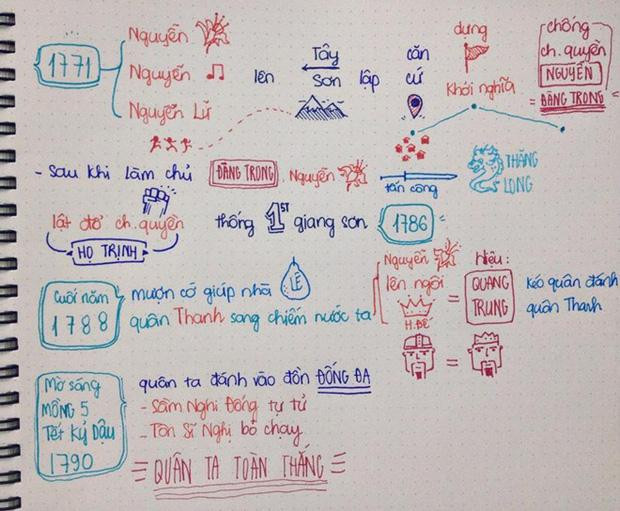 1771
Nguyễn
Nguyễn
Nguyễn Lữ
lên
Tây
Sơn lập
căn
cứ
dựng
Khởi nghĩa
chống
ch.quyền
NGUYỄN
= ĐÀNG TRONG =
- Sau khi làm chủ ĐÀNG TRONG, Nguyễn
tấn công
THĂNG
LONG
lật đổ ch.quyền
HỌ TRỊNH
thống 1ST giang sơn
1786
Cuối năm
1788
mượn cớ giúp nhà LÊ
quân Thanh sang chiếm nước ta
Nguyễn
lên ngôi
H.ĐẾ
hiệu:
= QUANG
TRUNG
Kéo quân đánh
quân Thanh
=
Mờ sáng
MỒNG 5
Tết Kỷ Dậu
1790
quân ta đánh vào đồn ĐỐNG ĐA
- Sầm Nghi Đống tự tử
- Tôn Sĩ Nghị bỏ chạy
QUÂN TA TOÀN THẮNG